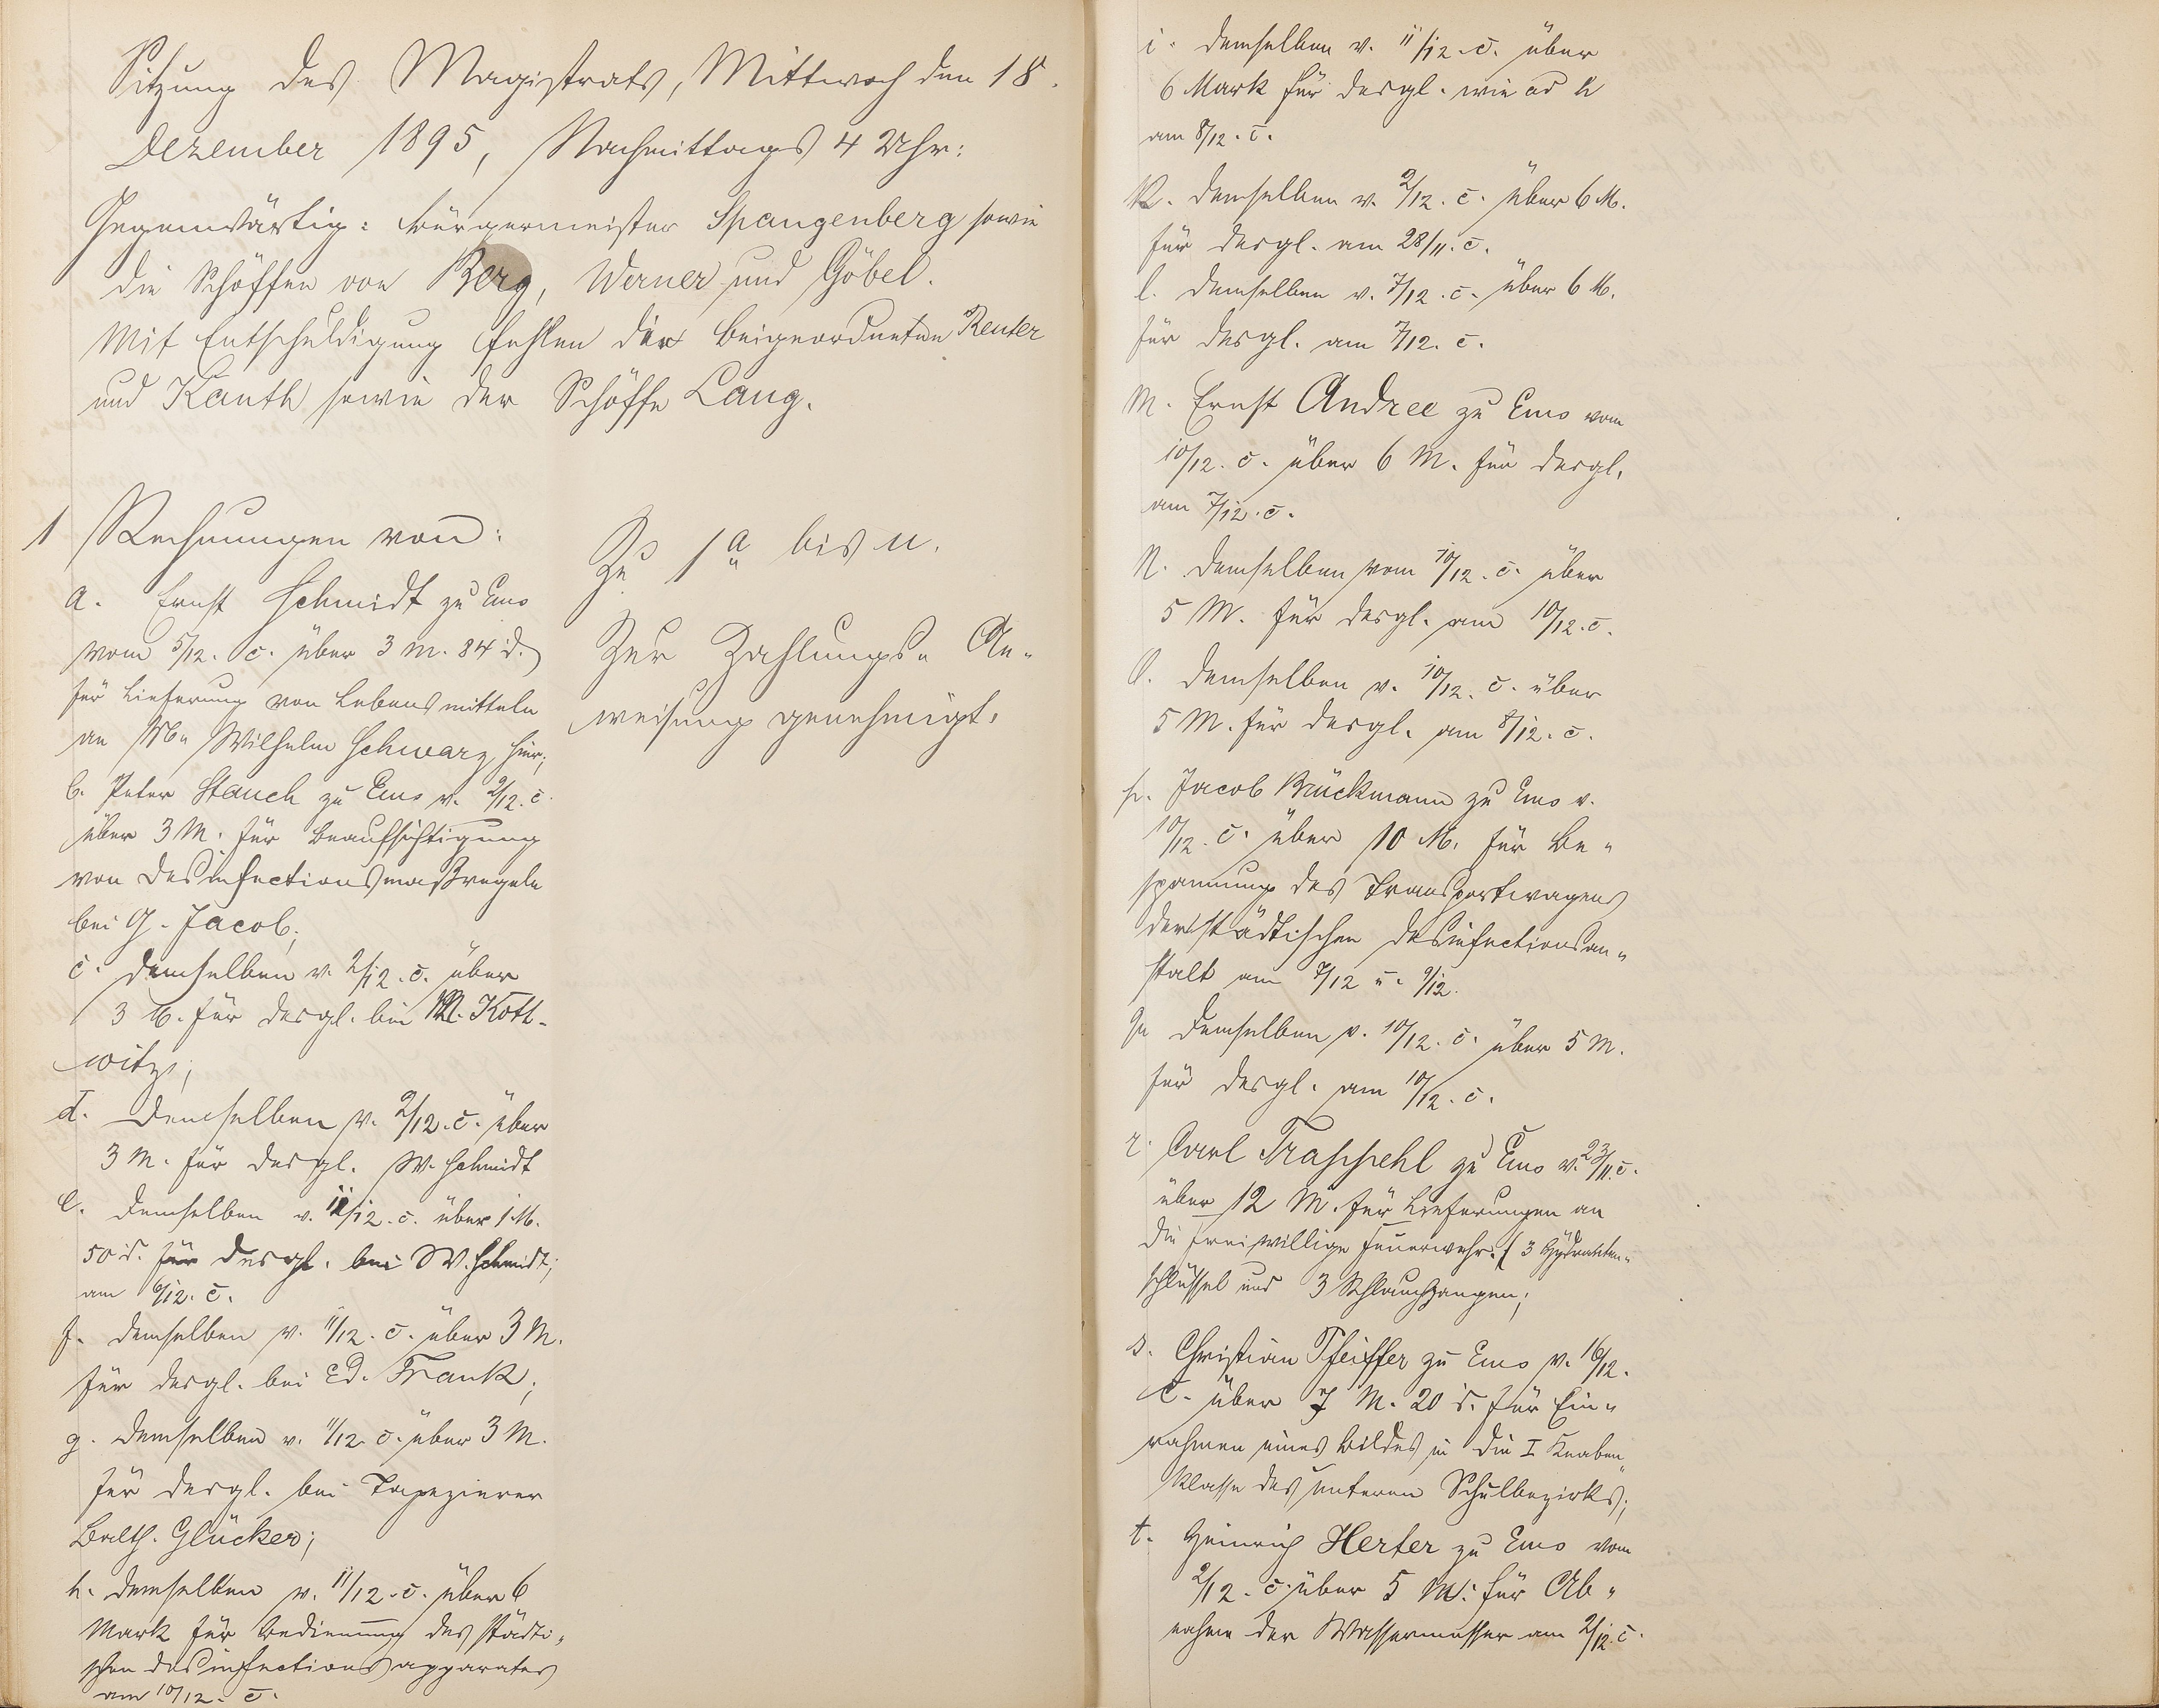 Sitzung des Magistrats, Mittwoch den 18.
Dezember 1895, Nachmittags 4 Uhr:
Gegenwärtig: Bürgermeister Spangenberg sowie
die Schöffen von Berg, Werner und Göbel.
Mit Entschuldigung fehlen die Beigeordneten Reuter
und Kauth sowie der Schöffe Lang.
1 Rechnungen von:
a. Ernst Schmidt zu Ems
vom 5/12. c. über 3 M. 84 d.
für Lieferung von Lebensmitteln
an Wilhelm Schwarz, hier;
b. Peter Stauch zu Ems v. 2/12. c.
über 3 M. für Beaufsichtigung
von Desinfectionsmaßregeln
bei G. Jacob;
c. demselben v. 2/12. c. über
3 M. für desgl. bei M. Kott-
witz;
d. demselben v. 2/12. c. über
3 M. für desgl. W. Schmidt
e. demselben v. 11/12. c. über 1 M.
50 d. für desgl. bei W. Schmidt;
am 6/12. c.
f. demselben v. 11/12. c. über 3 M.
für desgl. bei Ed. Frank;
g. demselben v. 11/12. c. über 3 M.
für desgl. bei Tapezierer
Balth. Glücker;
h. demselben v. 11/12. c. über 6
Mark für Bedienung des städti„
schen Desinfectionsapparates
am 10/12. c.
Zu 1 a bis u.
Zur Zahlungs„ An„
weisung genehmigt.
i. demselben v. 11/12. c. über
6 Mark für desgl. wie ad h
am 8/12. c.
k. demselben v. 2/12. c. über 6 M.
für desgl. am 28/11. c.
l. demselben v. 7/12. c. über 6 M.
für desgl. am 7/12. c.
m. Ernst Andree zu Ems vom
10/12. c. über 6 M. für desgl.
am 7/12. c.
n. demselben vom 10/12. c. über
5 M. für desgl. am 10/12. c.
o. demselben v. 10/12. c. über
5 M. für desgl. am 8/12. c.
p. Jacob Brückmann zu Ems v.
10/12. c. über 10 M. für Be„
spannung des Transportwagens
der städtischen Desinfectionsan„
stalt am 7/12 u. 9/12.
q. demselben v. 10/12. c. über 5 M.
für desgl. am 10/12. c.
r. Carl Traxpehl zu Ems v. 23/11. c.
über 12 M. für Lieferungen an
die freiwillige Feuerwehr. ( 3 Hydranten„
schlüssel und 3 Schlauchzangen;
s. Christian Pfeiffer zu Ems v. 16/12.
c. über 7 M. 20 d. für Ein„
rahmen eines Bildes in die I Knaben„
klasse des unteren Schulbezirks;
t. Heinrich Herter zu Ems vom
2/12. c. über 5 M. für Ab„
nahme der Wassermesser am 2/12. c.